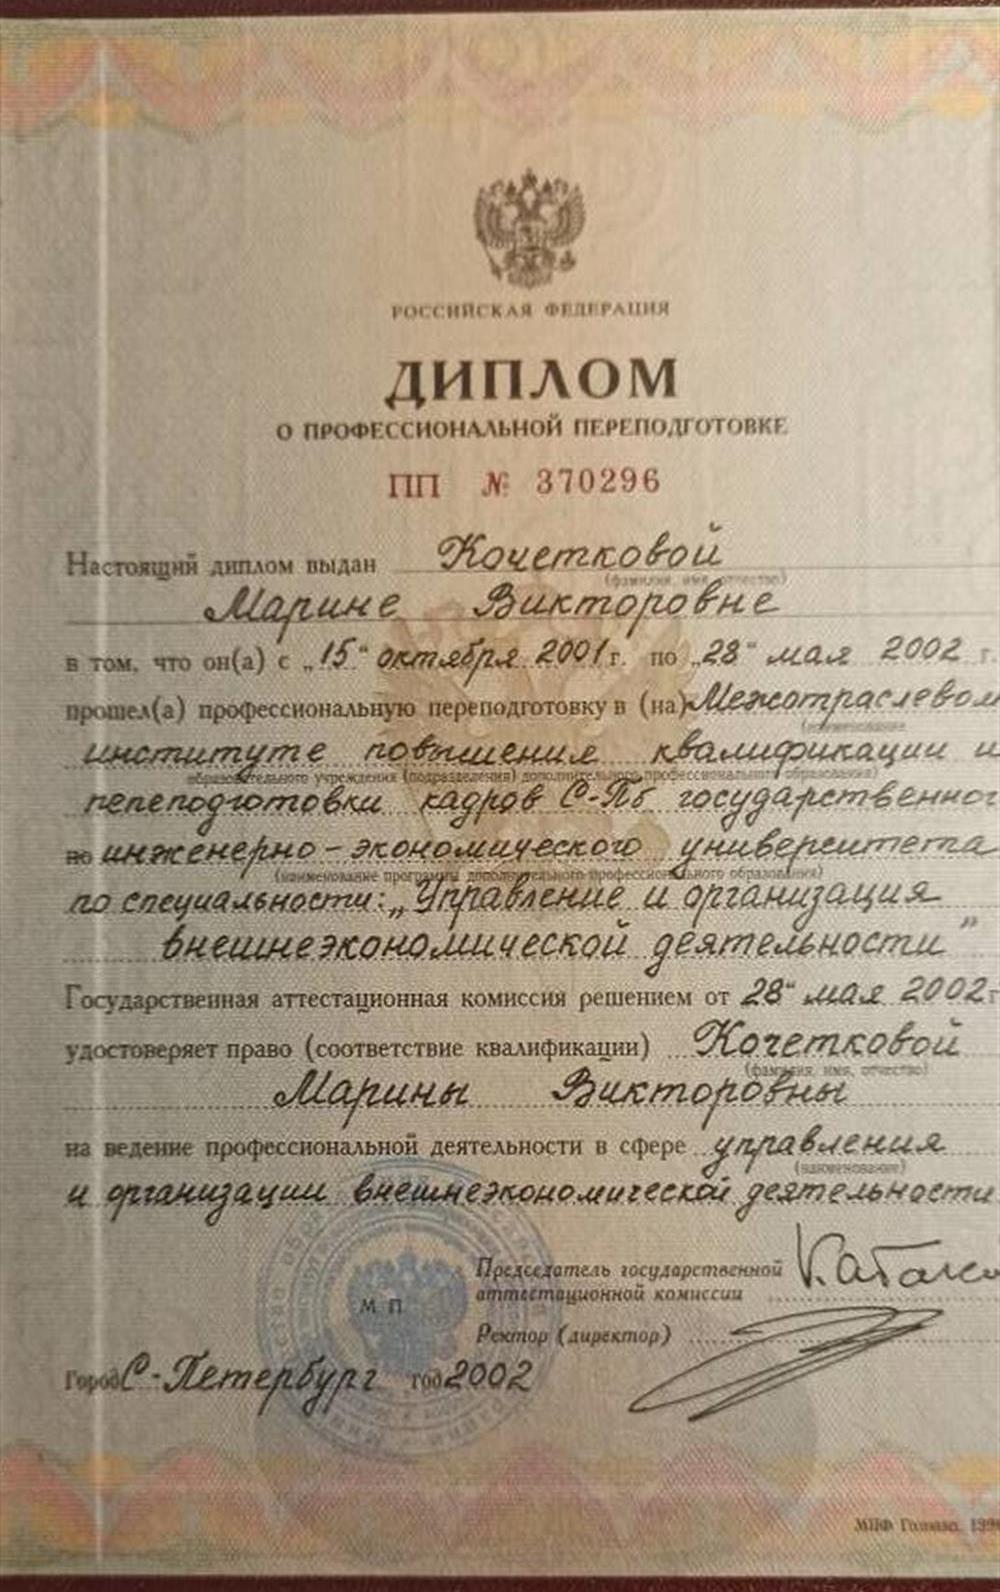 РОССИЙСКАЯ ФЕДЕРАЦИЯ
ДИПЛОМ
О ПРОФЕССИОНАЛЬНОЙ ПЕРЕПОДГОТОВКЕ
ПП № 370296
Настоящий диплом выдан Кочетковой
(фамилия, имя, отчество)
Марине Викторовне
в том, что он(а) с „15" октября 2001 г. по „28" мая 2002 г.
прошел(а) профессиональную переподготовку в (на) Межотраслевом
(наименование
институте повышения квалификации и
образовательного учреждения (подразделения) дополнительного профессионального образования)
пепеподготовки кадров С-Пб государственног
по инженерно-экономического университета
(наименование программы дополнительного профессионального образования)
по специальности: „Управление и организация
внешнеэкономической деятельности"
Государственная аттестационная комиссия решением от 28" мая 2002 г
удостоверяет право (соответствие квалификации) Кочетковой
(фамилия, имя, отчество)
Марины Викторовны
на ведение профессиональной деятельности в сфере управления
(наименование)
и организации внешнеэкономической деятельности
Председатель государственной
аттестационной комиссии
М П
Ректор (директор)
Город С-Петербург год 2002
МПФ Гознака. 199